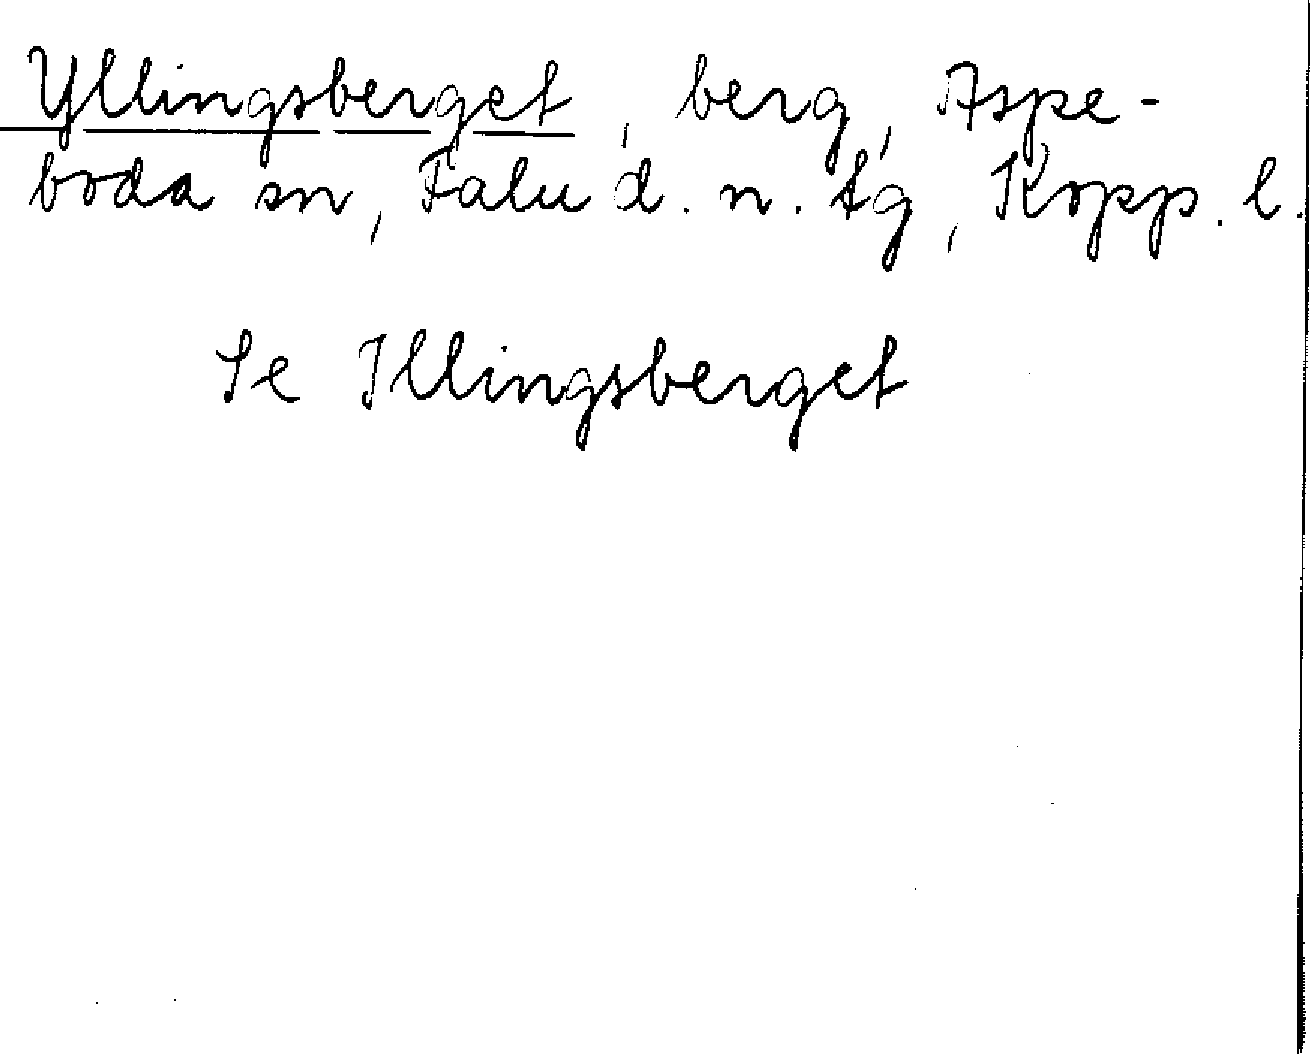 Yllingsberget, berg, Aspe-
boda sn, Falu d. n. tg, Kopp. l.
Se Illingsberget